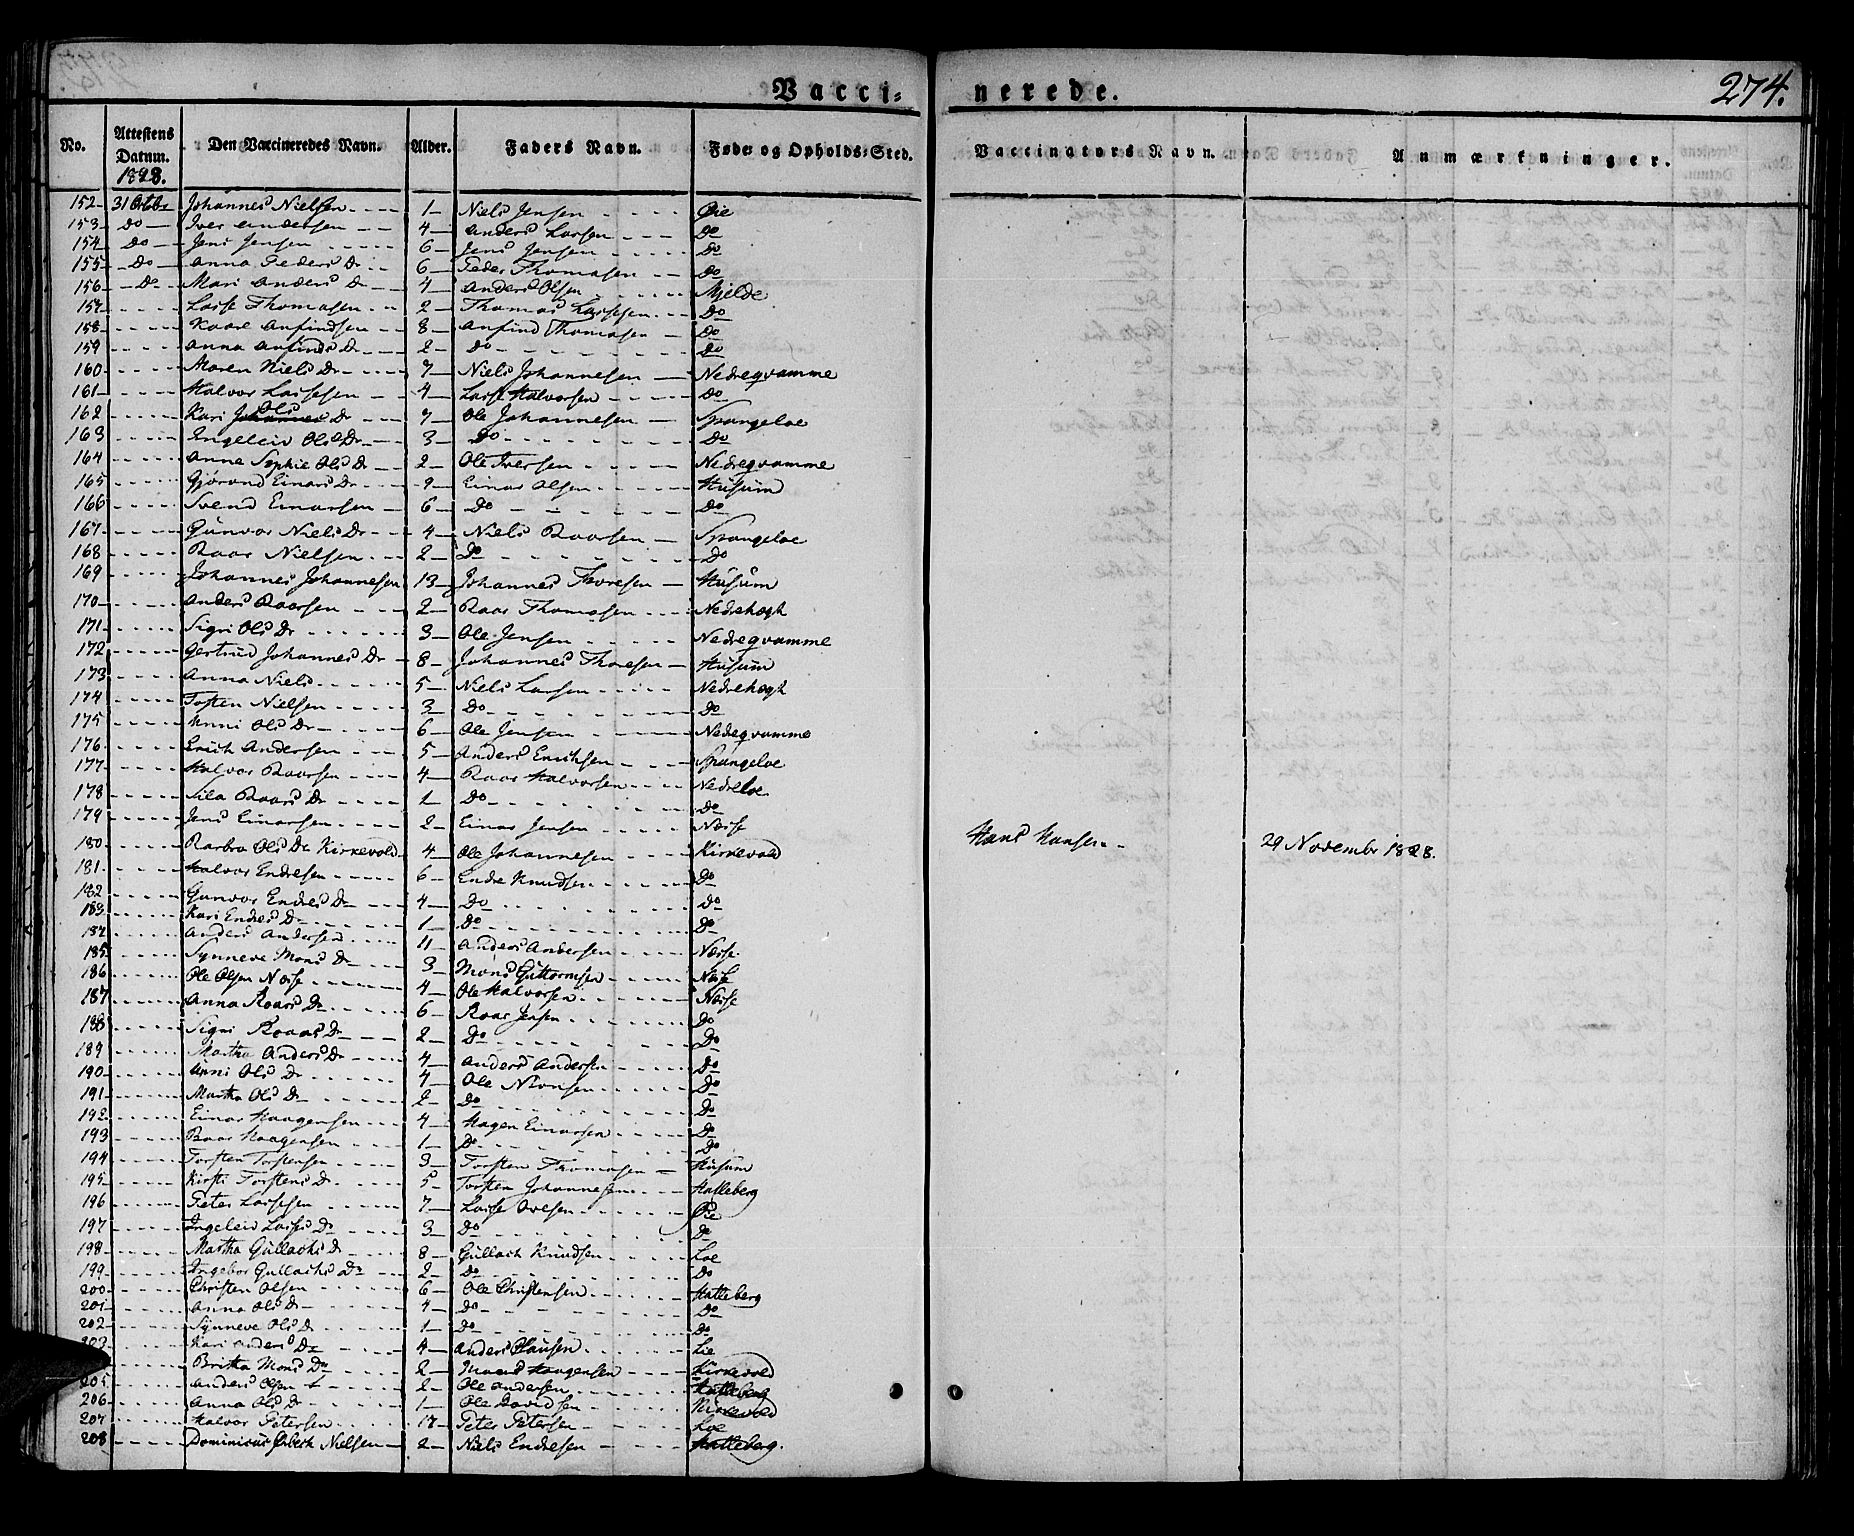 Vacci=
nerede.
274.
No. Attestens Datum. 1828. Den Vaccineredes Navn. Alder. Faders Navn. Føde= og Opholds=Sted. Vaccinators Navn. Anmærkninger.
152 31 Octobr Johannes Nielsen 1 Niels Jensen Øie
153 Do Iver Andersen 4 Anders Larsen Do
154 Do Jens Jensen 6 Jens Jensen Do
155 Do Anna Peders Dr 6 Peder Thomasen Do
156 Do Mari Anders Dr 4 Anders Olsen Mjelde
157 Lasse Thomasen 2 Thomas Lassesen Do
158 Kaare Anfindsen 8 Anfind Thomasen Do
159 Anna Anfinds Dr 2 Do Do
160 Maren Niels Dr 7 Niels Johannesen Nedreqvamme
161 Halvor Lassesen 4 Lasse Halvorsen Do
162 Kari Ols Dr 7 Ole Johannesen Spangeloe
163 Engeleiv Ols Dr 3 Do Do
164 Anne Sophie Ols Dr 2 Ole Iversen Nedreqvamme
165 Gjørond Einars Dr 9 Einar Olsen Husum
166 Svend Einarsen 6 Do Do
167 Gunvor Niels Dr 4 Niels Roarsen Spangeloe
168 Roar Nielsen 2 Do Do
169 Johannes Johannesen 13 Johannes Thoresen Husum
170 Anders Roarsen 2 Roar Thomasen Nedrehægt
171 Sigri Ols Dr 3 Ole Jensen Nedreqvamme
172 Gertrud Johannes Dr 8 Johannes Thoresen Husum
173 Anna Niels 5 Niels Larsen Nedrehægt
174 Tosten Nielsen 3 Do Do
175 Unni Ols Dr 6 Ole Jensen Nedreqvamme
176 Erich Andersen 5 Anders Erichsen Spangeloe
177 Halvor Roarsen 4 Roar Halvorsen Nedreloe
178 Sila Roars Dr 1 Do Do
179 Jens Einarsen 2 Einar Jensen Næsse
180 Barbra Ols Dr Kirkevold 4 Ole Johannesen Kirkevold Hans Hansen 29 Novembr 1828.
181 Halvor Endresen 6 Endre Knudsen Do
182 Gunvor Endres Dr 4 Do Do
183 Kari Endres Dr 1 Do Do
184 Anders Andersen 11 Anders Andersen Næsse
185 Synneve Mons Dr 3 Mons Guttormsen Næsse
186 Ole Olsen Næsse 4 Ole Halvorsen Næsse
187 Anna Roars Dr 6 Roar Jensen Do
188 Sigri Roars Dr 2 Do Do
189 Martha Anders Dr 4 Anders Andersen Do
190 Unni Ols Dr 4 Ole Monsen Do
191 Martha Ols Dr 2 Do Do
192 Einar Haagensen 4 Hagen Einarsen Do
193 Roar Haagensen 1 Do Do
194 Torsten Torstensen 3 Torsten Thomasen Husum
195 Kirsti Torstens D. 5 Torsten Johannesen Halleberg
196 Peter Lassesen 7 Lasse Ivesen Øie
197 Ingeleiv Lasses Dr 3 Do Do
198 Martha Gullachs Dr 8 Gullach Knudsen Loe
199 Ingebor Gullachs Dr 2 Do Do
200 Christen Olsen 6 Ole Christensen Halleberg
201 Anna Ols Dr 4 Do Do
202 Synneve Ols Dr 1 Do Do
203 Kari Anders Dr 4 Anders Hansen Lie
Britha Mons Dr 2 Mons Haagensen Kirkevold
205 Anders Olsen 2 Ole Andersen Halleberg
206 Anna Ols Dr 1 Ole Davidsen Kirkevold
207 Halvor Petersen 17 Peter Petersen Loe
208 Dominicus Nielsen 2 Niels Endresen Halleberg.